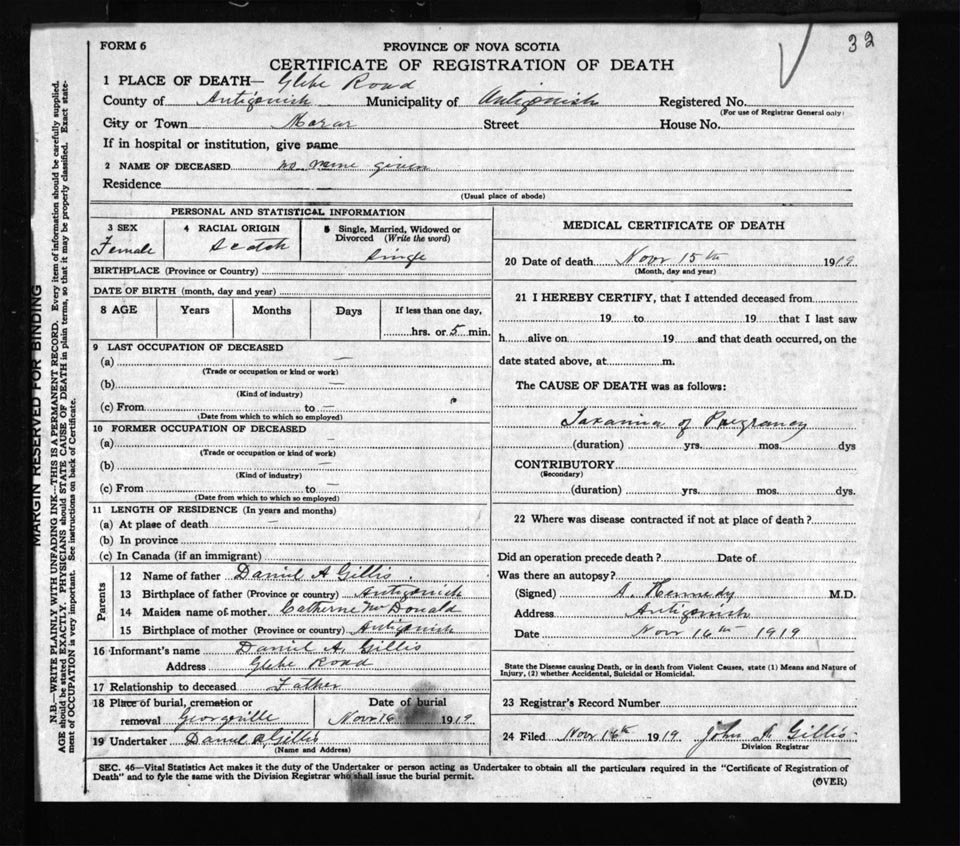 FORM 6
32
PROVINCE OF NOVA SCOTIA
CERTIFICATE OF REGISTRATION OF DEATH
1 PLACE OF DEATH— Glebe Road
County of Antigonish Municipality of Antigonish Registered No.
(For use of Registrar General only)
City or Town Morar Street House No.
If in hospital or institution, give name
2 NAME OF DECEASED no name given
Residence
(Usual place of abode)
PERSONAL AND STATISTICAL INFORMATION
3 SEX Female
4 RACIAL ORIGIN Scotch
5 Single, Married, Widowed or Divorced (Write the word)
Single
BIRTHPLACE (Province or Country)
DATE OF BIRTH (month, day and year)
8 AGE Years Months Days If less than one day,
hrs. or 5 min.
9 LAST OCCUPATION OF DECEASED
(a) —
(Trade or occupation or kind or work)
(b) —
(Kind of industry)
(c) From to —
(Date from which to which so employed)
10 FORMER OCCUPATION OF DECEASED
(a) —
(Trade or occupation or kind of work)
(b) —
(Kind of industry)
(c) From to —
(Date from which to which so employed)
11 LENGTH OF RESIDENCE (In years and months)
(a) At place of death —
(b) In province
(c) In Canada (if an immigrant)
Parents
12 Name of father Daniel A Gillis
13 Birthplace of father (Province or country) Antigonish
14 Maiden name of mother Catherine McDonald
15 Birthplace of mother (Province or country) Antigonish
16 Informant's name Daniel A. Gillis
Address Glebe Road
17 Relationship to deceased Father
18 Place of burial, cremation or removal Georgeville
Date of burial
Nov 16 1919
19 Undertaker Daniel A Gillis
(Name and Address)
MEDICAL CERTIFICATE OF DEATH
20 Date of death Novr 15th 1919
(Month, day and year)
21 I HEREBY CERTIFY, that I attended deceased from
19 to 19 that I last saw
h alive on 19 and that death occurred, on the
date stated above, at m.
The CAUSE OF DEATH was as follows:
Toxaemia of Pregnancy
(duration) yrs. mos. dys
CONTRIBUTORY
(Secondary)
(duration) yrs. mos. dys.
22 Where was disease contracted if not at place of death?
Did an operation precede death? Date of
Was there an autopsy?
(Signed) A. Kennedy M.D.
Address Antigonish
Date Novr 16th 1919
State the Disease causing Death, or in death from Violent Causes, state (1) Means and Nature of
Injury, (2) whether Accidental, Suicidal or Homicidal.
23 Registrar's Record Number
24 Filed Novr 16th 1919 John A Gillis
Division Registrar
SEC. 46—Vital Statistics Act makes it the duty of the Undertaker or person acting as Undertaker to obtain all the particulars required in the "Certificate of Registration of
Death" and to fyle the same with the Division Registrar who shall issue the burial permit.
(OVER)
MARGIN RESERVED FOR BINDING
N.B.—WRITE PLAINLY WITH UNFADING INK—THIS IS A PERMANENT RECORD. Every item of information should be carefully supplied.
AGE should be stated EXACTLY. PHYSICIANS should STATE CAUSE OF DEATH in plain terms, so that it may be properly classified. Exact state-
ment of OCCUPATION is very important. See instructions on back of Certificate.